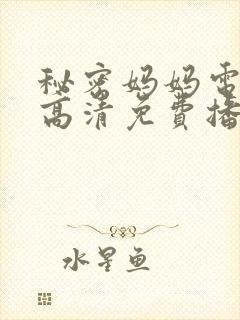 秘密妈妈电
高清免費播
水星鱼